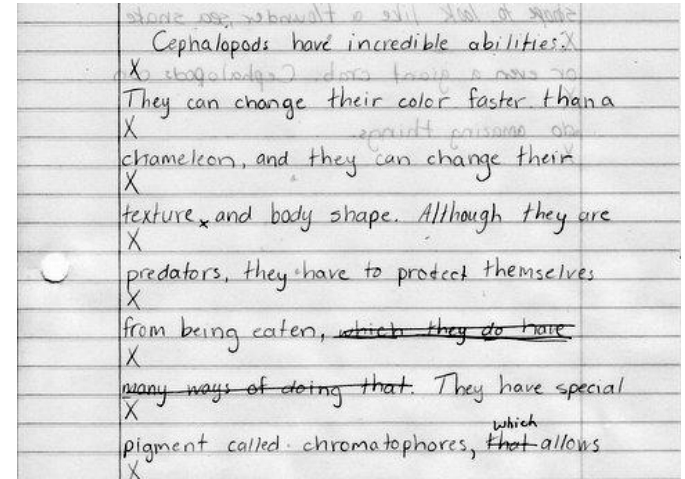 Cephalopods have incredible abilities.
X
They can change their color faster than a
X
chameleon, and they can change their
X
texture and body shape. Although they are
X
predators, they have to protect themselves
X
from being eaten, which they do have
X
many ways of doing that. They have special
X
which
pigment called chromatophores, that allows
X